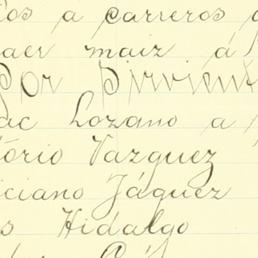 os a carreros
aer maiz á
Por Sirvient
ac Lozano a
torio Vazquez
iciano Jáquez
s Hidalgo